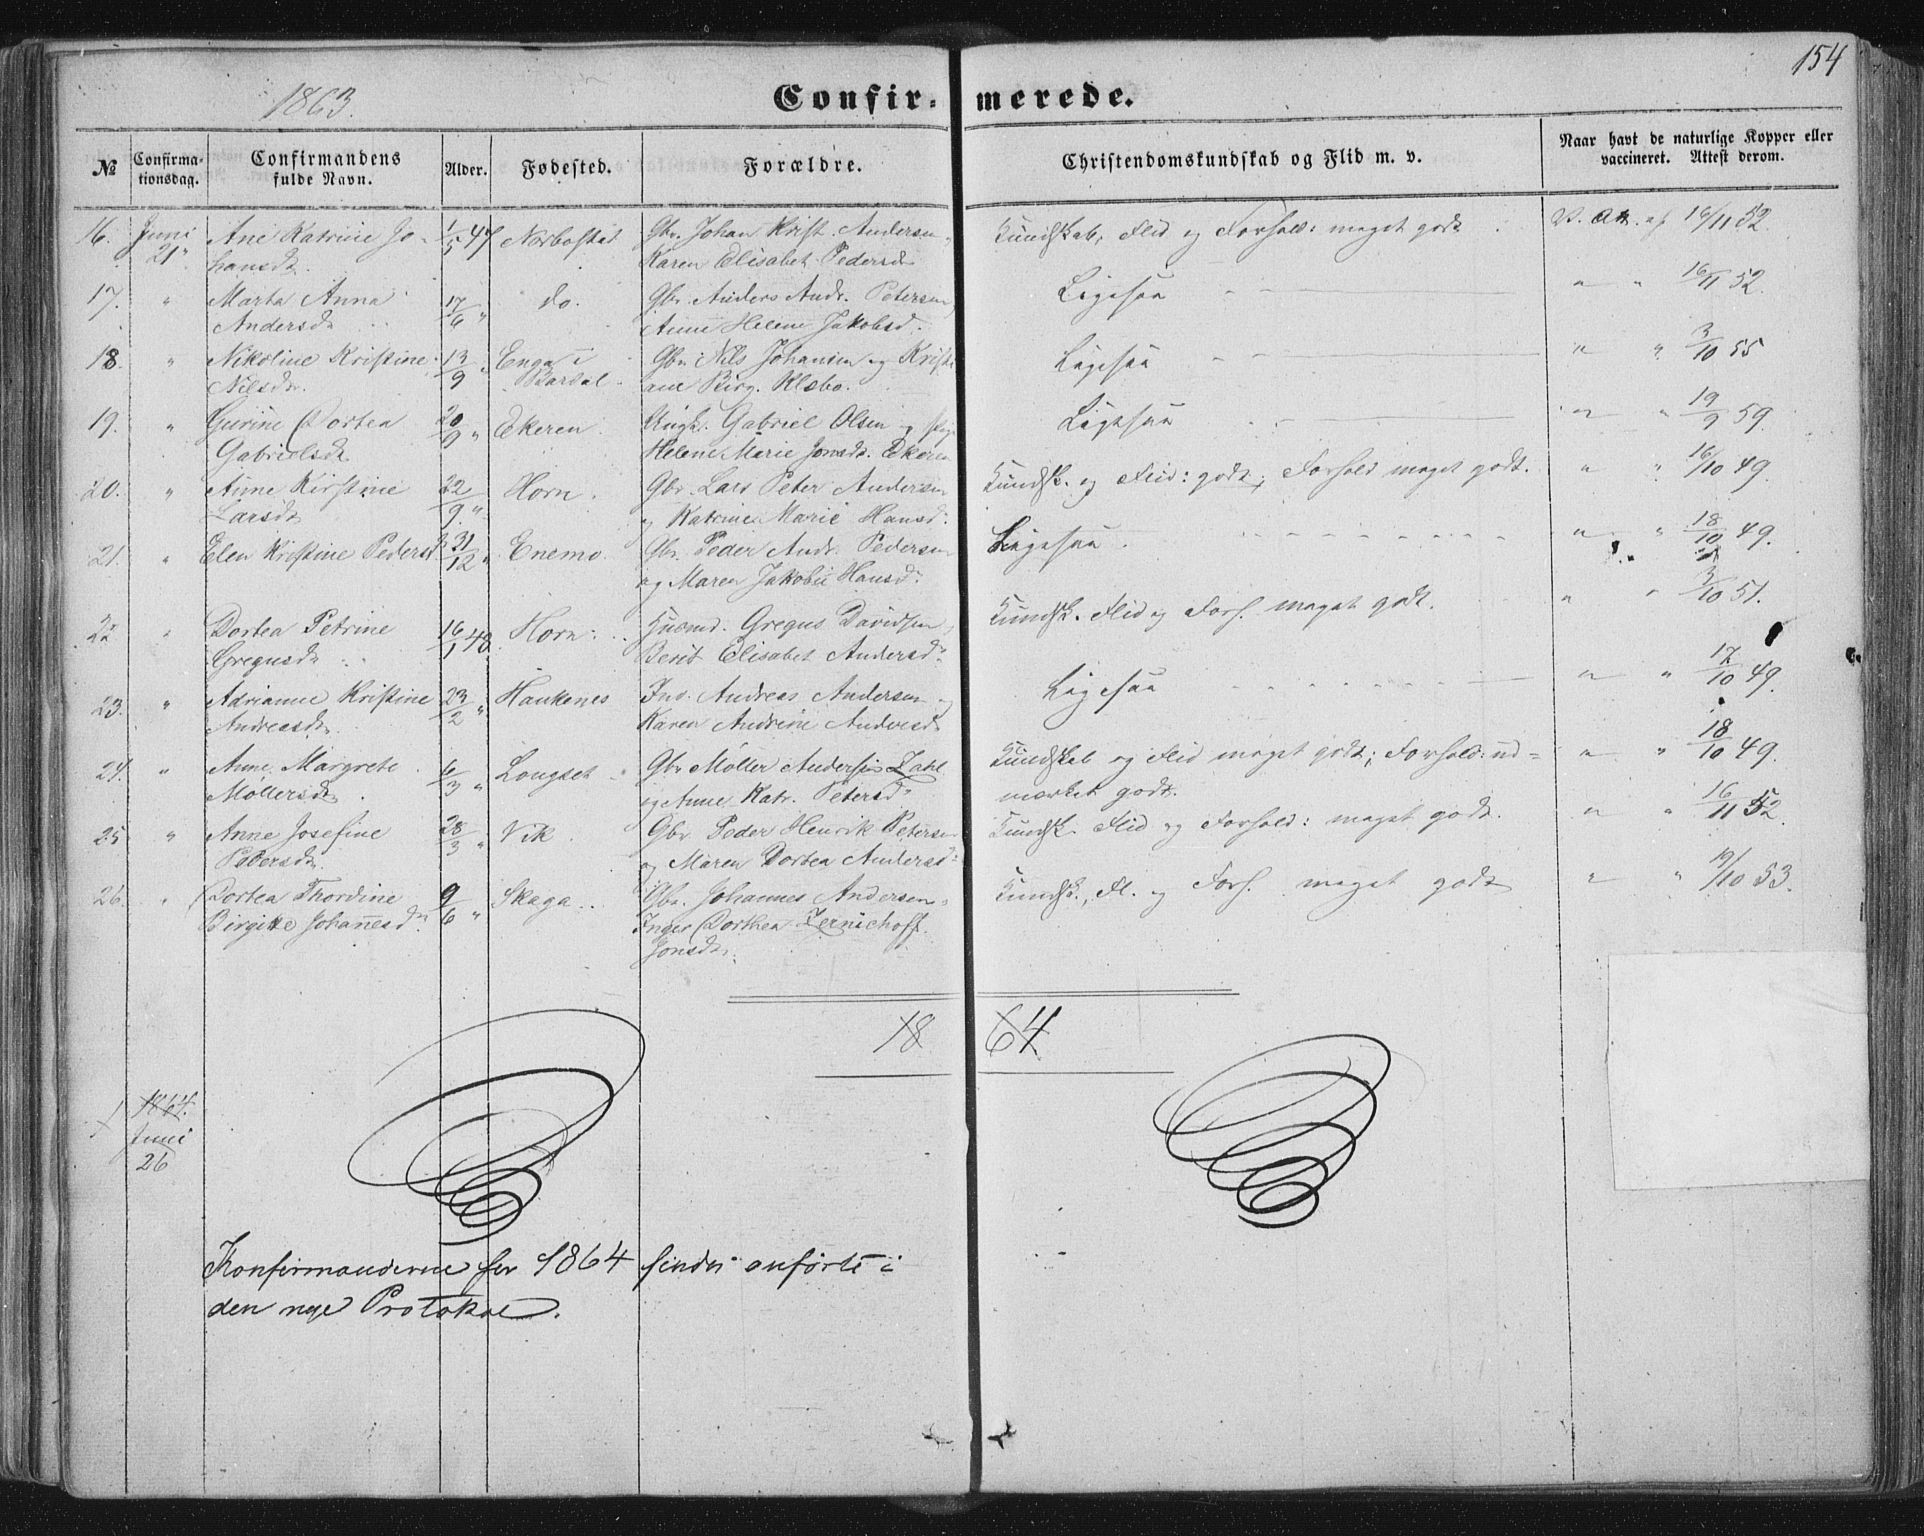 154
1863.
Confir- merede.
№ Confirma-tionsdag. Confirmandens fulde Navn. Alder. Fødested. Forældre. Christendomskundskab og Flid m. v. Naar havt de naturlige Kopper eller vaccineret. Attest derom.
16. Juni 21 Ane Katrine Jo- 1/5 47 Norbostad Gbr. Johan Krist. Andersen, Kundskab, Flid og Forhold: meget godt V. Att. af 16/11 52
hansdr. Karen Elisabet Pedersdr
17. " Marta Anna 17/6 " do. Gbr. Anders Andr. Petersen, Ligesaa " " 16/11 52.
Andersdr Anne Helene Jakobsd.
18. " Nikoline Kristine 13/9 " Enga i Gbr. Nils Johansen og Kristi Ligesaa " " 3/10 55
Nilsdr. Bardal ane Birg. Klæbo.
19. " Gurine Dortea 20/9 " Ekeren Ungk. Gabriel Olsen og Pige Ligesaa " " 19/9 59.
Gabrielsdr Helene Marie Jonsdr. Ekeren
20. " Anne Kirstine 22/9 " Horn. Gbr. Lars Peter Andersen Kundsk. og Flid: godt; Forhold meget godt. " " 16/10 49.
Larsdr og Katrine Marie Hansd.
21. " Elen Kristine Pedersd 31/12 " Enemo Gbr. Peder Andr. Pedersen Ligesaa. " " 18/10 49.
og Maren Jakobie Hansd.
22 " Dortea Petrine 16/1 48 Horn. Husmd. Gregus Davidsen, Kundsk. Flid og Forh. meget godt. " " 3/10 51.
Gregusdr Berit Elisabet Andersd.
23. " Adrianne Kristine 23/2 " Haukenes Ind. Andreas Andersen og Ligesaa " " 17/10 49.
Andreasdr. Karen Andrine Andersdr
24. " Anne Margrete 6/3 " Longset Gbr Möller Andersen Zahl Kundskab og Flid meget godt; Forhold: ud= " " 18/10 49.
Möllersdr og Anne Katr. Petersd. mærket godt.
25 " Anne Josefine 28/3 " Vik. Gbr Peder Henrik Petersen Kundsk. Flid og Forhold: meget godt. " " 16/11 52.
Pedersdr og Maren Dortea Andersd.
26. " Dortea Thordine 9/6 " Skaga. Gbr. Johannes Andersen, Kundsk., Fl. og Forh. meget godt " " 19/10 53.
Birgitte Johañesd. Inger Dorthea Zernichoff
Jonsdr.
18 64
1 1864.
Juni
26
Konfirmanderne for 1864 findes anförte i
den nye Protokol.